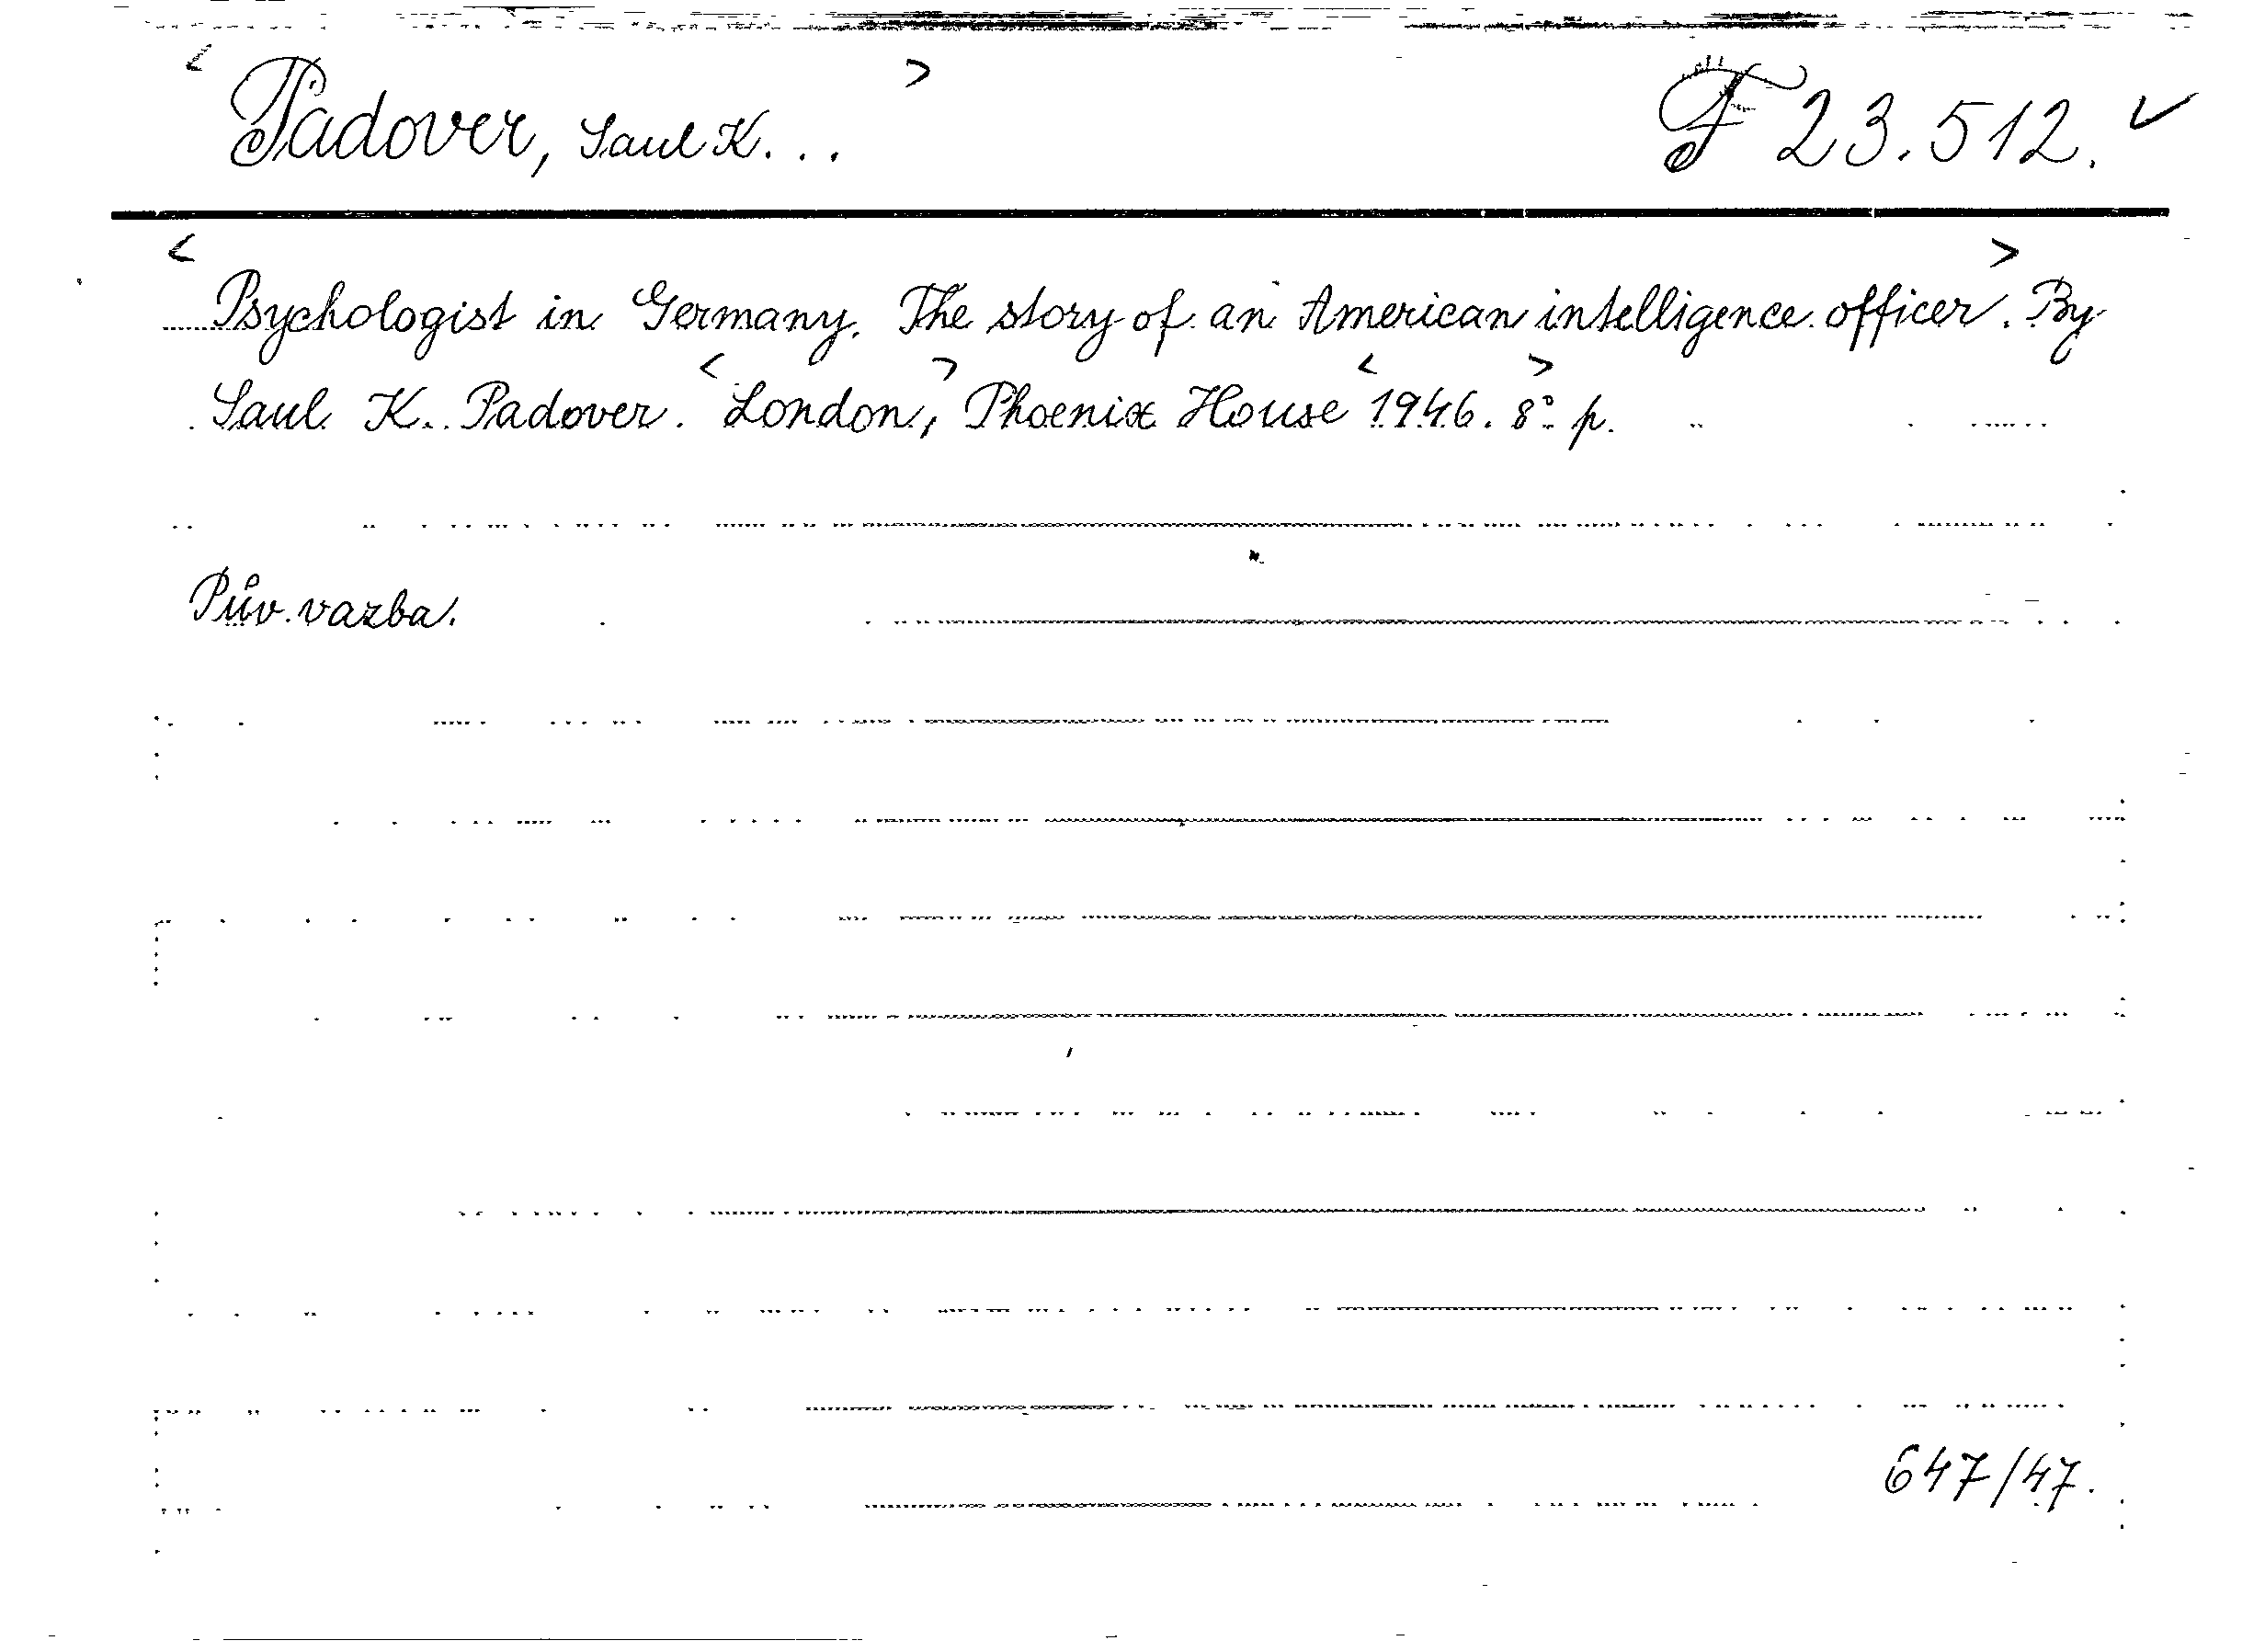 < Padover, Saul K. . . > F 23.512. ✓
< Psychologist in Germany. The story of an American intelligence officer >. By
Saul K. Padover. < London, > Phoenix House < 1946. > 8° p.
Pův. vazba.
647/47.